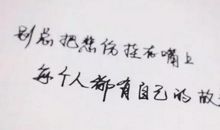 别总把悲伤挂在嘴上
每个人都有自己的故